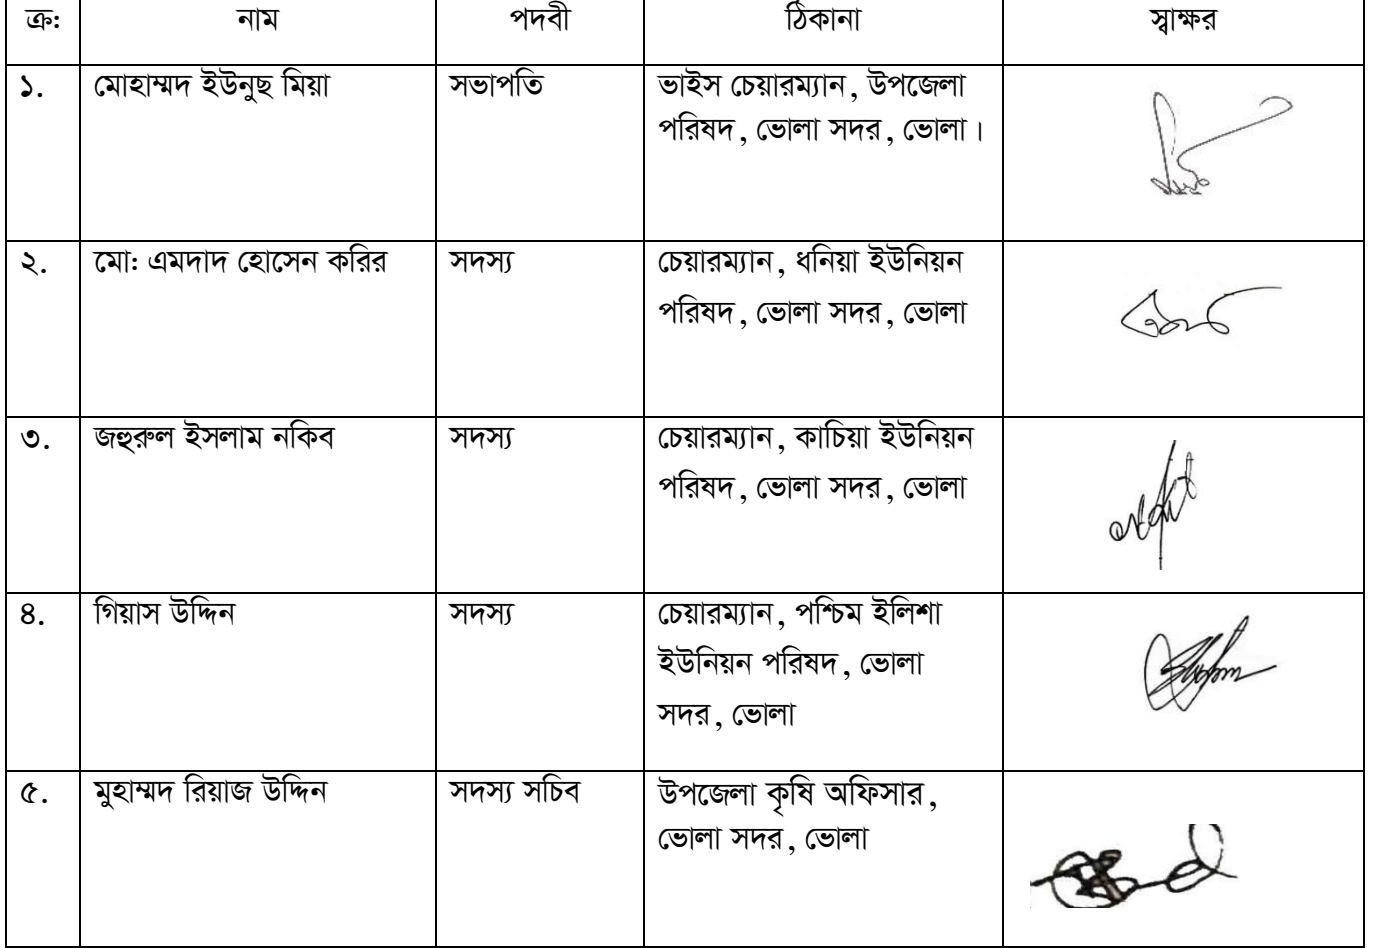 ক্র: নাম পদবী ঠিকানা স্বাক্ষর
১. মোহাম্মদ ইউনুছ মিয়া সভাপতি ভাইস চেয়ারম্যান, উপজেলা
পরিষদ, ভোলা সদর, ভোলা।
২. মো: এমদাদ হোসেন করির সদস্য চেয়ারম্যান, ধনিয়া ইউনিয়ন
পরিষদ, ভোলা সদর, ভোলা
৩. জহুরুল ইসলাম নকিব সদস্য চেয়ারম্যান, কাচিয়া ইউনিয়ন
পরিষদ, ভোলা সদর, ভোলা
৪. গিয়াস উদ্দিন সদস্য চেয়ারম্যান, পশ্চিম ইলিশা
ইউনিয়ন পরিষদ, ভোলা
সদর, ভোলা
৫. মুহাম্মদ রিয়াজ উদ্দিন সদস্য সচিব উপজেলা কৃষি অফিসার,
ভোলা সদর, ভোলা